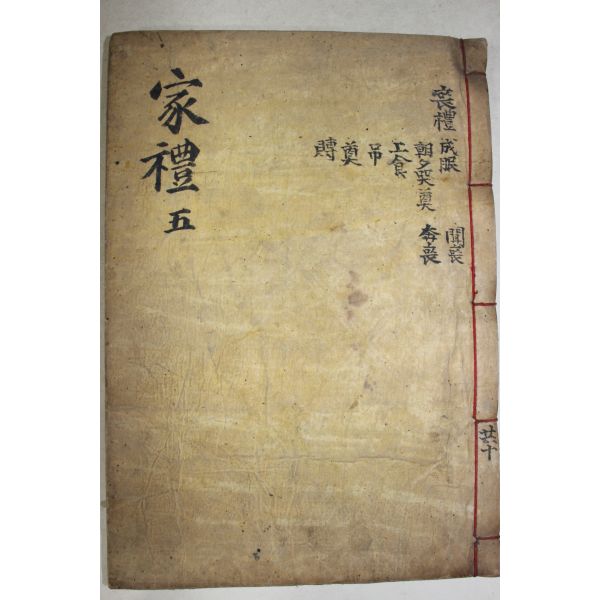 家禮 五
喪禮 成服 聞喪
朝夕哭奠 奔喪
上食
吊
奠
賻
共十